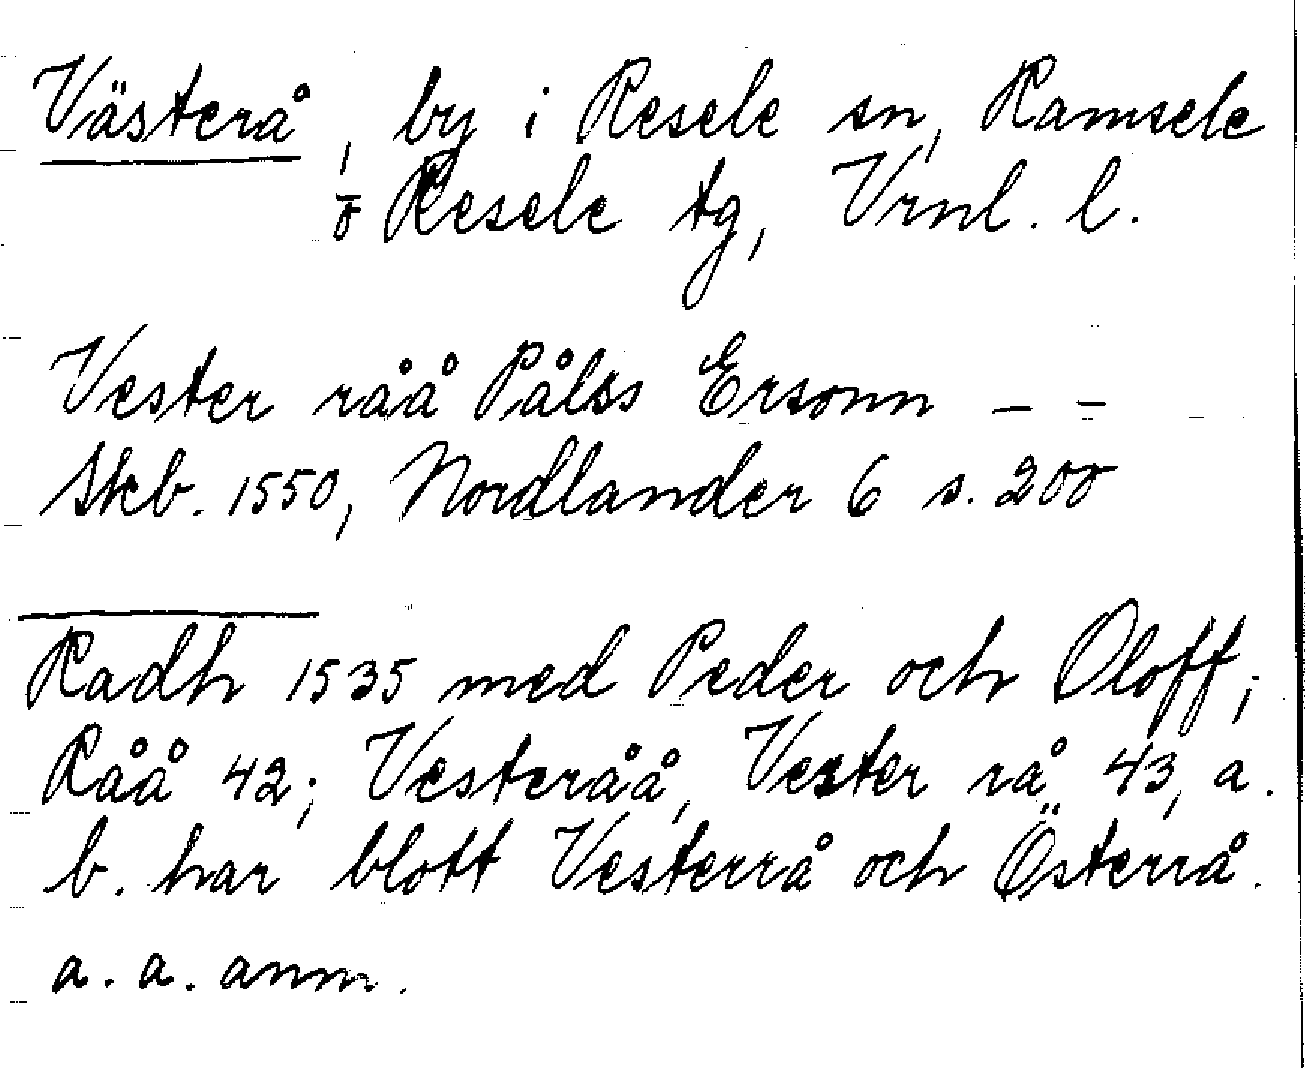 Västerå, by i Resele sn, Ramsele
o Resele tg, Vrnl. l.
Vester råå Pålss Ersonn – –
Skb. 1550, Nordlander 6 s. 200
Radh 1535 med Peder och Oloff;
Råå 42; Vesteråå, Vester rå 43, a.
b. har blott Vesterrå och Österrå.
a. a. anm.